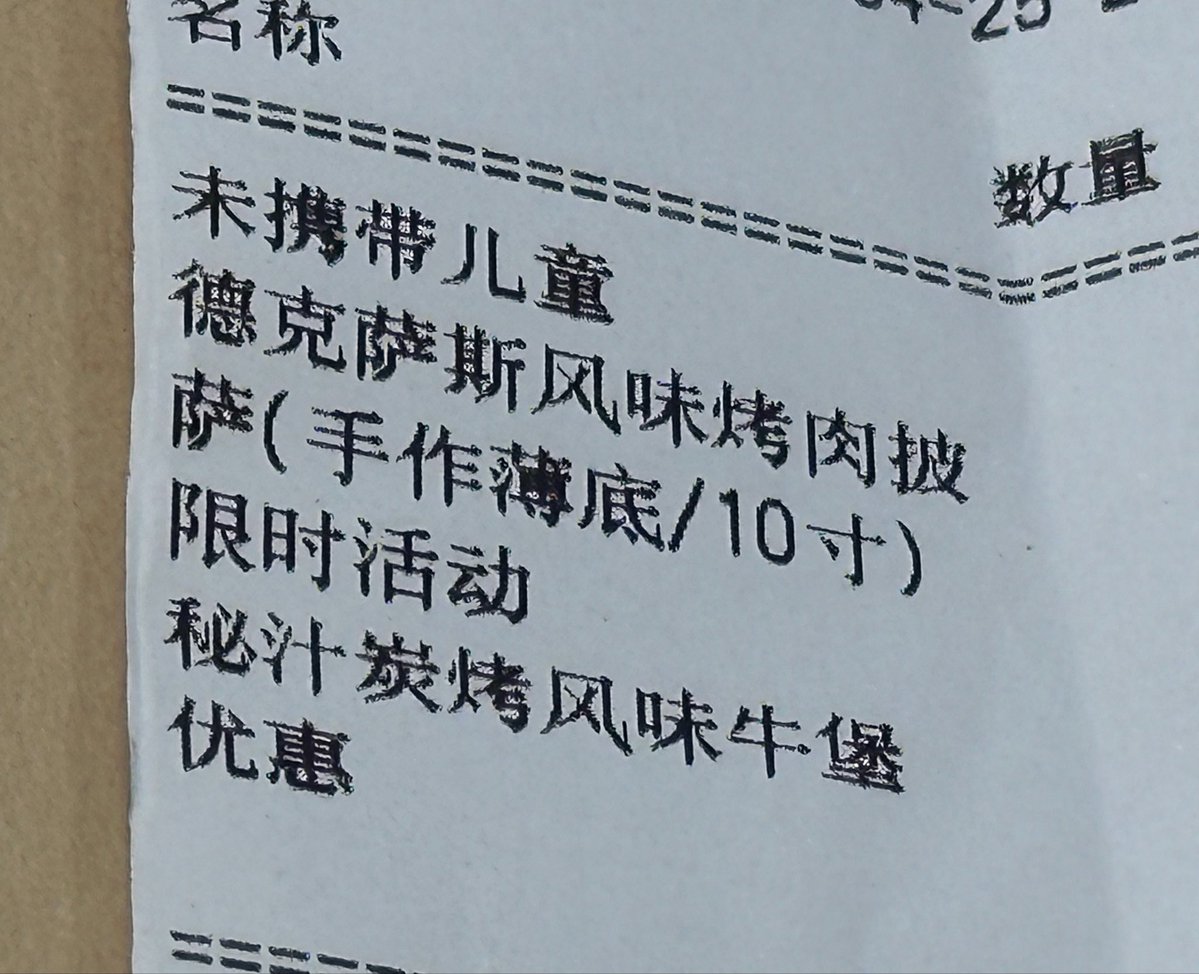 04-25
名称
数量
未携带儿童
德克萨斯风味烤肉披
萨(手作薄底/10寸)
限时活动
秘汁炭烤风味牛堡
优惠